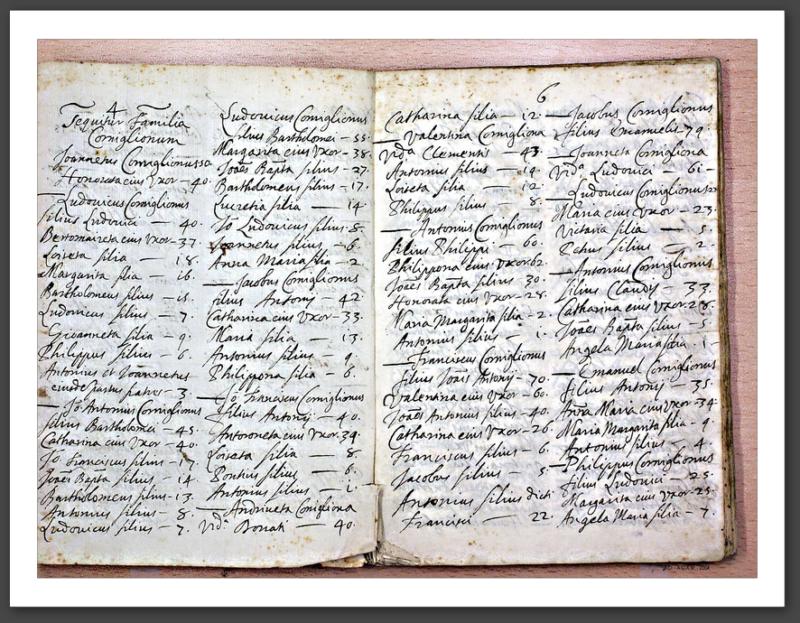 4
Sequitur Familia
Comiglionum
Joannetus Comiglionus 50
Honorata eius Vxor - 40.
Ludovicus Comiglionus
filius Ludovici - 40.
eius Vxor - 37.
Loiseta filia - 18.
Margarita filia - 16.
Bartholomeus filius - 15.
Ludovicus filius - 7.
Gioanneta filia - 9.
Philippus filius - 6.
Antonius et Joannetus
eiusdem partus fratres - 3
Jo Antonius Comiglionus
filius Bartholomei - 45.
Catharina eius Vxor - 40.
Jo Franciscus filius - 17.
Joães Bapta filius - 14.
Bartholomeus filius - 13.
Antonius filius - 8.
Ludovicus filius - 7.
Ludovicus Comiglionus
filius Bartholomei - 55.
Margarita eius Vxor - 38.
Joães Bapta filius - 27.
Bartholomeus filius - 17.
Lucretia filia - 14
Jo Ludovicus filius 8.
Joannetus filius - 6.
Anna Maria filia - 2
Jacobus Comiglionus
filius Antonij - 42.
Catharina eius Vxor - 33.
Maria filia - 13.
Antonius filius - 9.
Philippona filia - 6.
Jo Franciscus Comiglionus
filius Antonij - 40.
Antoroneta eius Vxor 34.
Loiseta filia - 8.
Pontius filius - 6.
Antonius filius - 1
Andrineta Comigliona
Vid.a Bonati - 40.
6
Catharina filia - 12.
Valentina Comigliona
Vid.a Clementis - 43.
Antonius filius - 14.
Loiseta filia - 12.
Philippus filius - 8.
Antonius Comiglionus
filius Philippi - 60.
Philippona eius Vxor 62.
Joães Bapta filius 30.
Honorata eius Vxor - 28.
Maria Margarita filia - 2.
Antonius filius - 1.
Franciscus Comiglionus
filius Joãis Antonij - 70.
Valentina eius Vxor - 60.
Joães Antonius filius - 40.
Catharina eius Vxor - 26.
Franciscus filius - 6.
Jacobus filius - 5.
Antonius filius dicti
Francisci - 22.
Jacobus Comiglionus
filius Emanuelis - 79.
Joanneta Comigliona
Vid.a Ludovici - 61 -
Ludovicus Comiglionus
Maria eius Vxor - 23.
Victoria filia - 5.
Petrus filius - 2.
Antonius Comiglionus
filius Claudij - 33.
Catharina eius Vxor 28.
Joães Bapta filius - 5.
Angela Maria filia - 1 -
Emanuel Comiglionus
filius Antonij - 35.
Anna Maria eius Vxor - 34
Maria Margarita filia - 9.
Antonius filius - 4.
Philippus Comiglionus
filius Ludovici - 25.
Margarita eius Vxor - 25.
Angela Maria filia - 7.